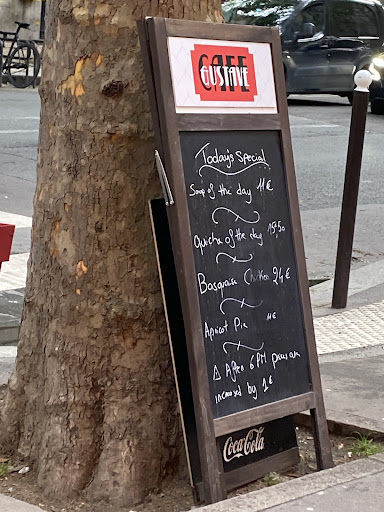 CAFE
GUSTAVE
Today's Special
Soup of the day 11€
Quiche of the day 19,50
Basquaise Chicken 24€
Apricot Pie 11€
Δ After 6PM prices are
increased by 1€
Coca-Cola